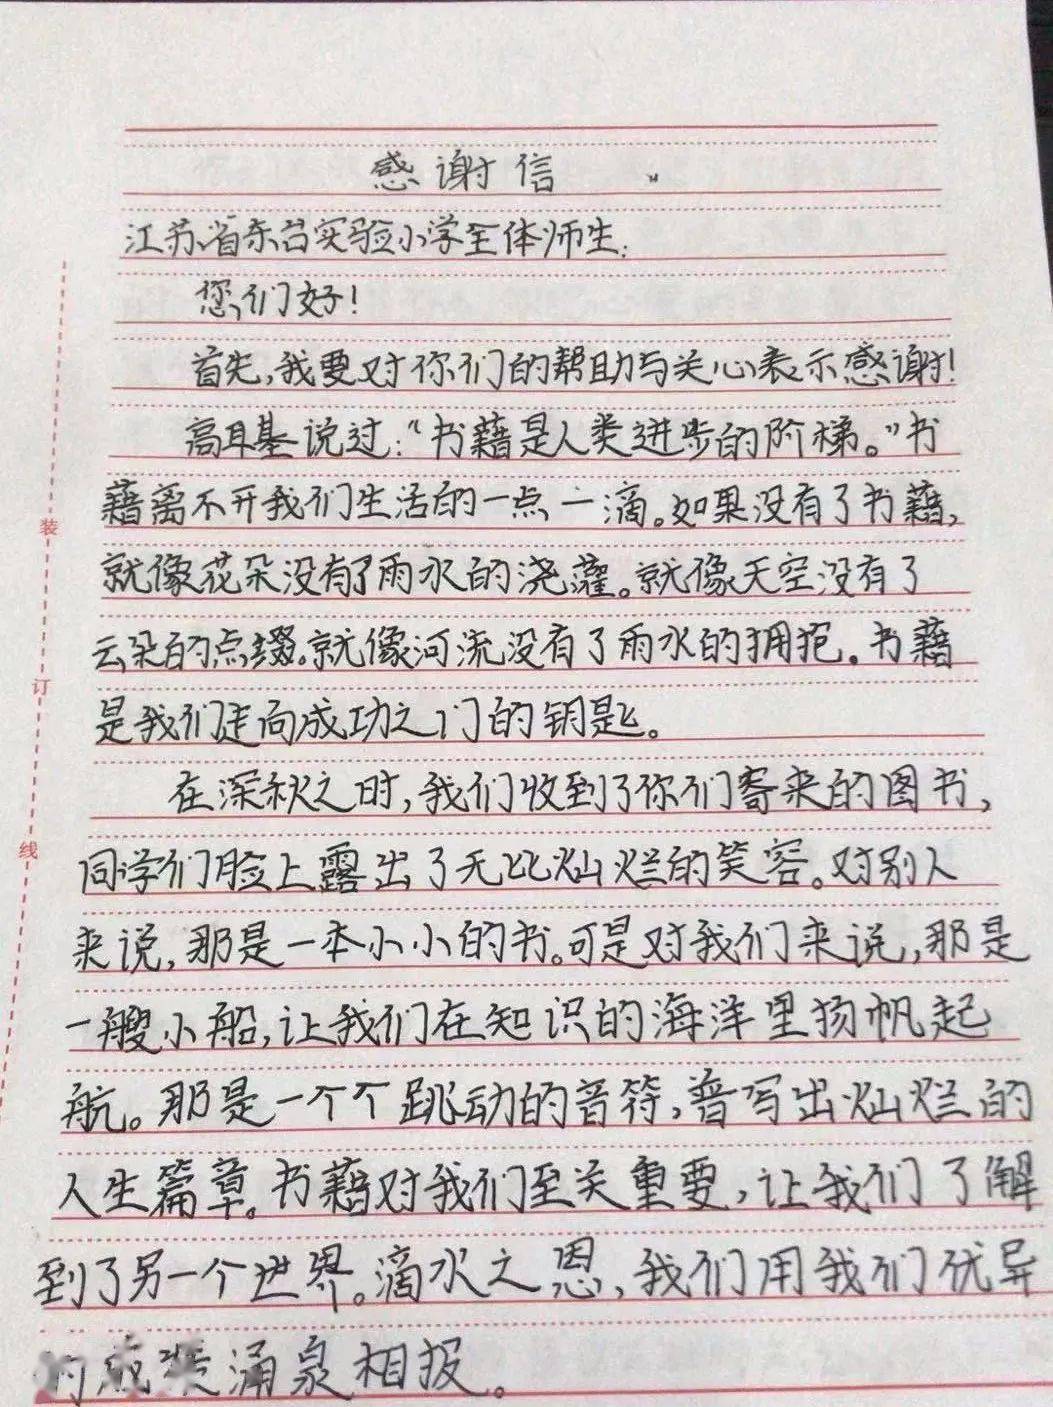 感谢信
江苏省东台实验小学全体师生:
您们好!
首先,我要对你们的帮助与关心表示感谢!
高耳基说过:“书藉是人类进步的阶梯。”书
藉离不开我们生活的一点一滴。如果没有了书藉,
就像花朵没有了雨水的浇灌。就像天空没有了
云朵的点缀。就像河流没有了雨水的拥抱。书藉
是我们走向成功之门的钥匙。
在深秋之时,我们收到了你们寄来的图书,
同学们脸上露出了无比灿烂的笑容。对别人
来说,那是一本小小的书。可是对我们来说,那是
一艘小船,让我们在知识的海洋里扬帆起
航。那是一个个跳动的音符,普写出灿烂的
人生篇章。书藉对我们至关重要,让我们了解
到了另一个世界。滴水之恩,我们用我们优异
的成涌泉相报。
装
订
线